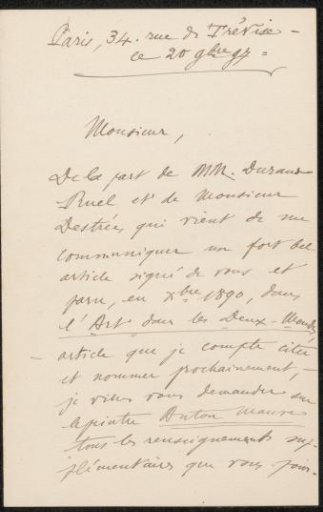 Paris, 34. rue de Trévise –
ce 20 9bre 97 =
Monsieur,
De la part de MM. Durand-
Ruel et de Monsieur
Destrée, qui vient de me
communiquer un fort bel
article signé de vous et
paru, en Xbre 1890, dans
l'Art dans les Deux-Mondes,
article que je compte citer
et nommer prochainement, –
je viens vous demander sur
le peintre Anton Mauve
tous les renseignements sup-
plémentaires que vous pour-